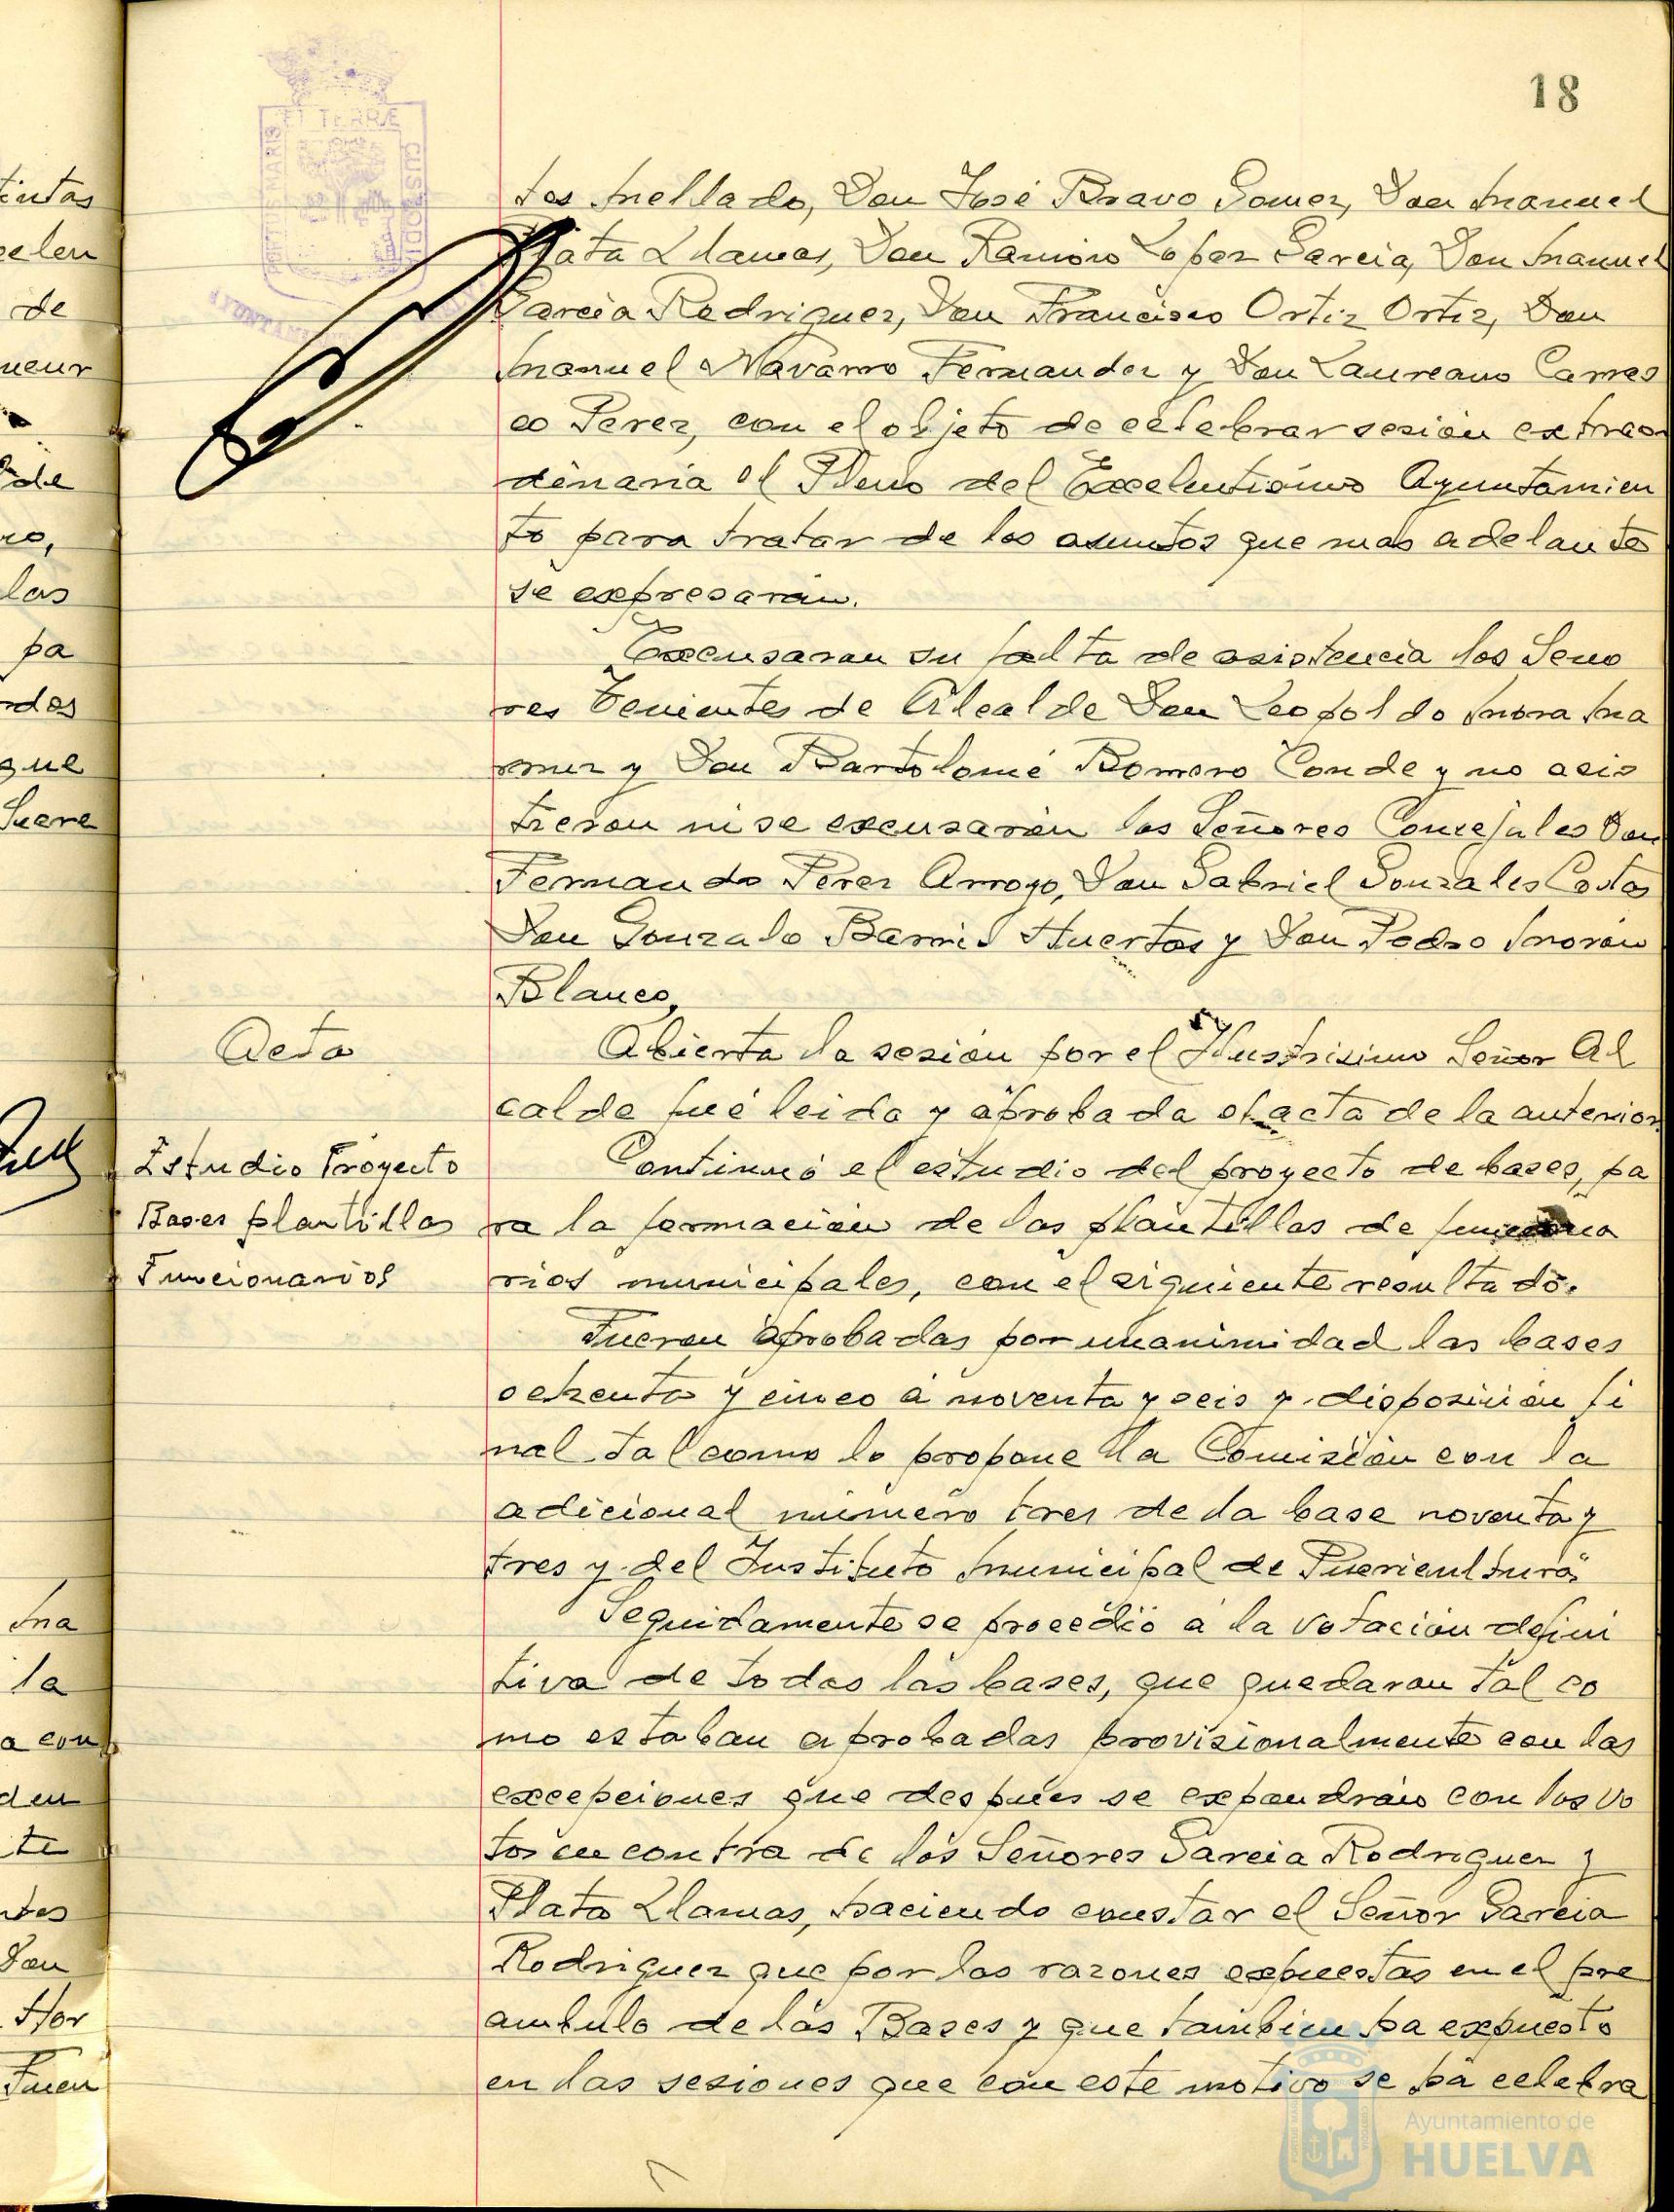 18
tes Mellado, Don José Bravo Gomez, Don Manuel
Plata Llamas, Don Ramiro Lopez Garcia, Don Manuel
Garcia Rodriguez, Don Francisco Ortiz Ortiz, Don
Manuel Navarro Fernandez y Don Laureano Carras
co Perez, con el objeto de celebrar sesión extraor
dinaria el Pleno del Excelentísimo Ayuntamien
to para tratar de los asuntos que mas adelante
se expresarán.
Excusaron su falta de asistencia los Seño
res Tenientes de Alcalde Don Leopoldo Mora Ma
y Don Bartolomé Romero Conde y no asis
tieron ni se excusarón los Señores Concejales Don
Fernando Perez Arroyo, Don Gabriel Gonzales Costas
Don Gonzalo Barril Huertas y Don Pedro Morón
Blanco,
Acta
Abierta la sesión por el Ilustrisimo Señor Al
calde fué leida y aprobada el acta de la anterior
Estudio Proyecto
Bases plantillas
Funcionarios
Continuó el estudio del proyecto de bases, pa
ra la formación de las plantillas de funciona
rios municipales, con el siguiente resultado.
Fueron aprobadas por unanimidad las bases
ochenta y cinco á noventa y seis y disposición fi
nal tal como lo propone la Comisión con la
adicional número tres de la base noventa y
tres y del Instituto Municipal de Puericultura"
Seguidamente se procedió a la votación defini
tiva de todas las bases, que quedaron tal co
mo estaban aprobadas provisionalmente con las
excepciones que despues se expondrán con los vo
tos en contra de los Señores Garcia Rodriguez y
Plata Llamas, haciendo constar el Señor Garcia
Rodriguez que por las razones expuestas en el pre
ambulo de las Bases y que tambien ha expuesto
en las sesiones que con este motivo se ha celebra
tintas
celen
de
de
las
pa
que
Ma
la
a con
te
Don
Hor
Fuen
ET TERRÆ
CUSTODIA
Ayuntamiento de
HUELVA